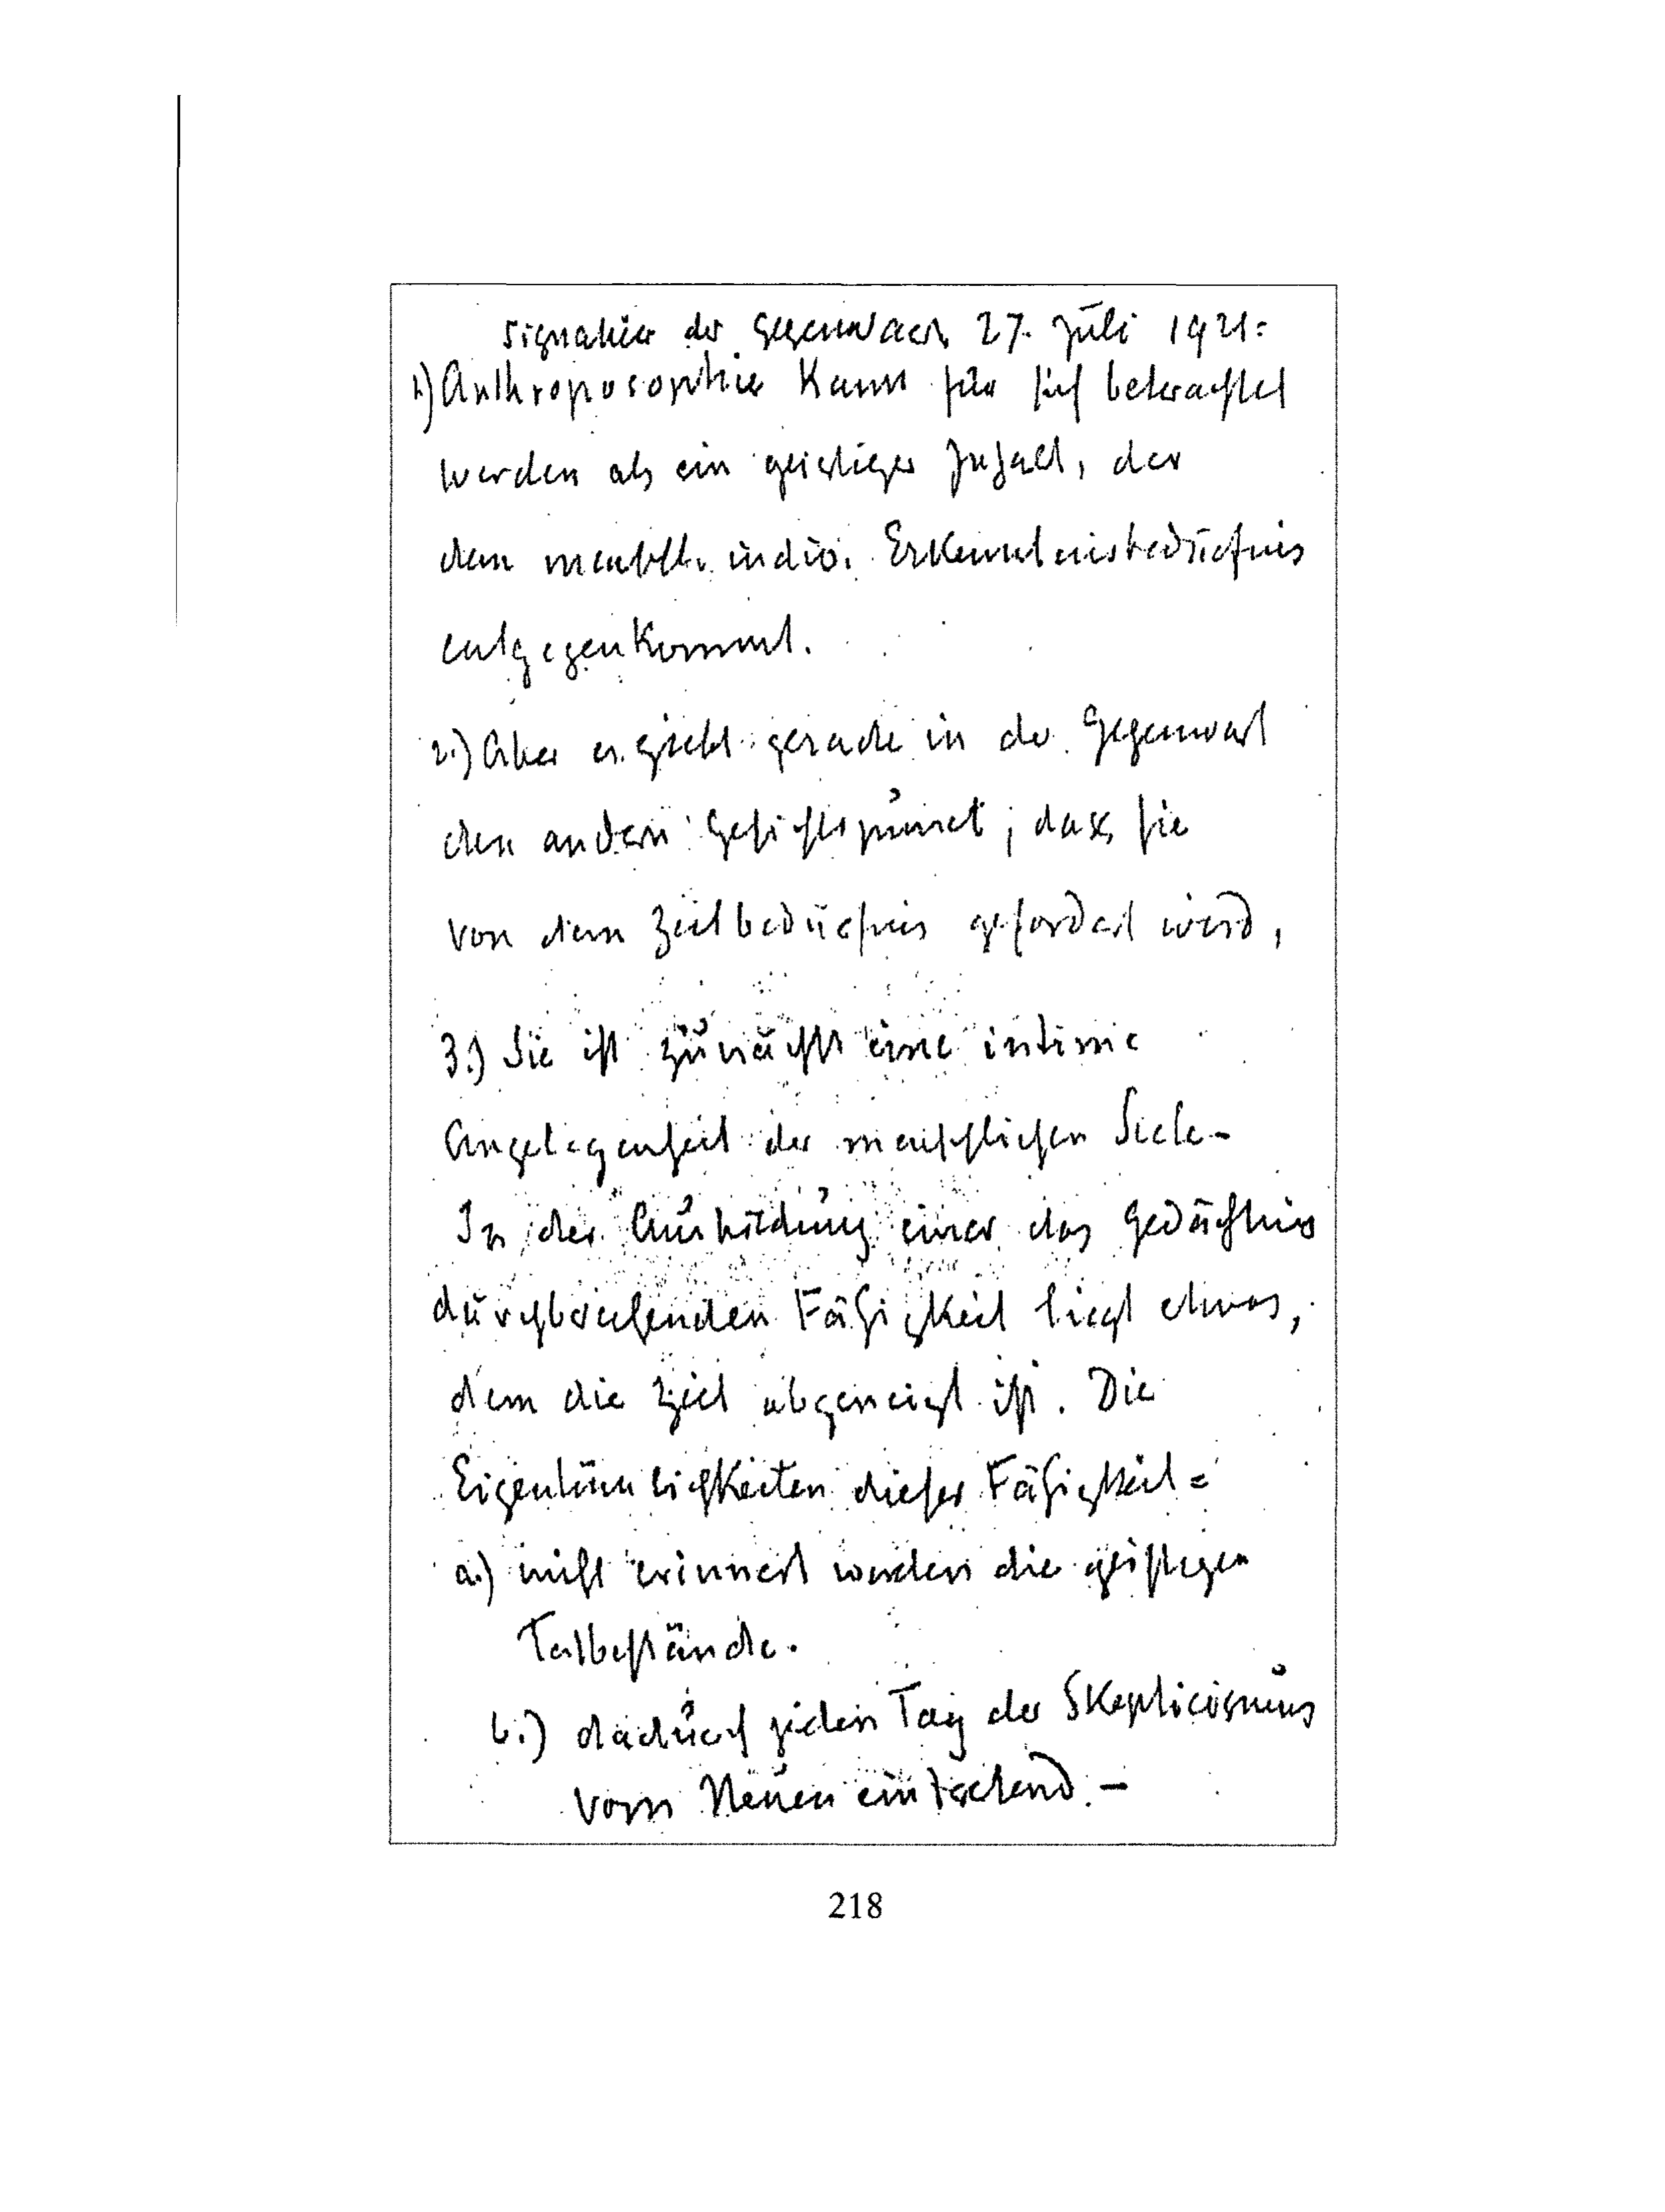 Signatur der Gegenwart 27. Juli 1921:
1.) Anthroposophie kann für sich betrachtet
werden als ein geistiger Inhalt, der
dem menschl. indiv. Erkenntnisbedürfnis
entgegenkommt.
2.) Aber es giebt gerade in der Gegenwart
den andern Gesichtspunct, dass sie
von dem Zeitbedürfnis gefordert wird,
3.) Sie ist zunächst eine intime
Angelegenheit der menschlichen Seele -
In der Ausbildung einer das Gedächtnis
durchbrechenden Fähigkeit liegt etwas,
dem die Zeit abgeneigt ist. Die
Eigentümlichkeiten dieser Fähigkeit =
a.) nicht erinnert werden die geistigen
Tatbestände.
b.) dadurch jeden Tag der Skepticismus
vom Neuen eintretend. -
218